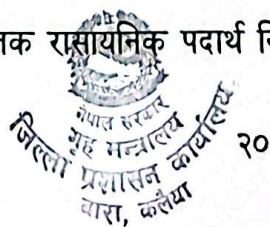 रासायनिक पदार्थ
नेपाल सरकार
गृह मन्त्रालय
जिल्ला प्रशासन कार्यालय
बारा, कलैया
२०